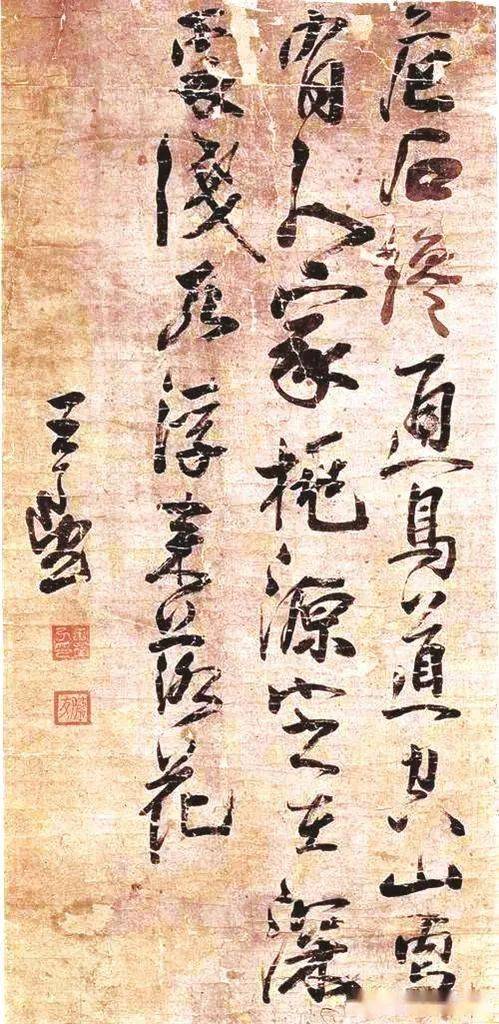 危石纔通鳥道空山更
有人家桃源定在深
處淺水浮來落花
王鐸